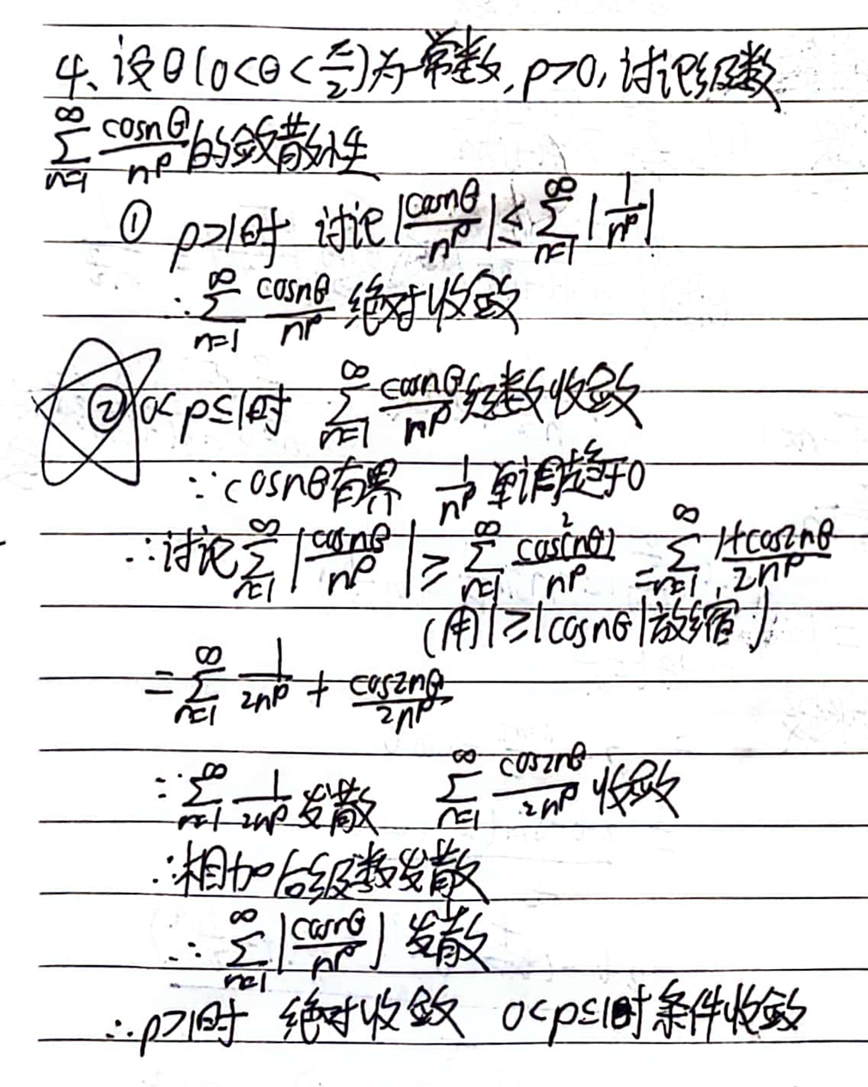 4、设θ(0<θ<π/2)为一常数,p>0,讨论级数
∑_{n=1}^{∞} cosnθ/n^p 的敛散性
① p>1时 讨论|cosnθ/n^p|≤∑_{n=1}^{∞}|1/n^p|
∴∑_{n=1}^{∞} cosnθ/n^p 绝对收敛
②0<p≤1时 ∑_{n=1}^{∞} cosnθ/n^p 级数收敛
∵cosnθ有界 1/n^p 单调趋于0
∴讨论∑_{n=1}^{∞}|cosnθ/n^p|≥∑_{n=1}^{∞} cos²(nθ)/n^p =∑_{n=1}^{∞} (1+cos2nθ)/2n^p
(用1≥|cosnθ|放缩)
=∑_{n=1}^{∞} 1/2n^p + cos2nθ/2n^p
∵∑_{n=1}^{∞} 1/2n^p 发散 ∑_{n=1}^{∞} cos2nθ/2n^p 收敛
∴相加后级数发散
∴∑_{n=1}^{∞}|cosnθ/n^p| 发散
∴p>1时 绝对收敛 0<p≤1时条件收敛